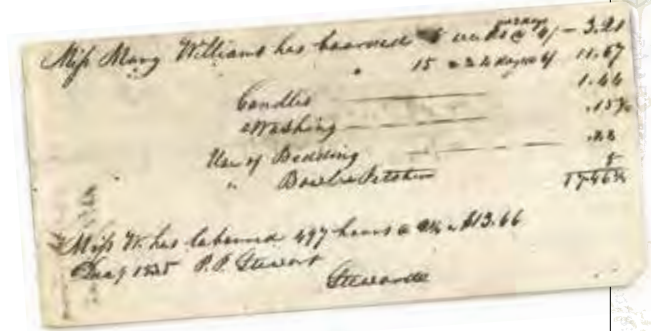 Miss Mary Williams has boarded 5 weeks @ 4/ – 3.21
" 15 " 2 4 days @ 4/ 11.67
Candles 1.44
Washing .15½
Use of Bedding .22
" Bowl & Pitcher 8
17.46½
Miss W. has labored 497 hours @ 2¾ = $13.66
1835 P. P. Stewart
Steward